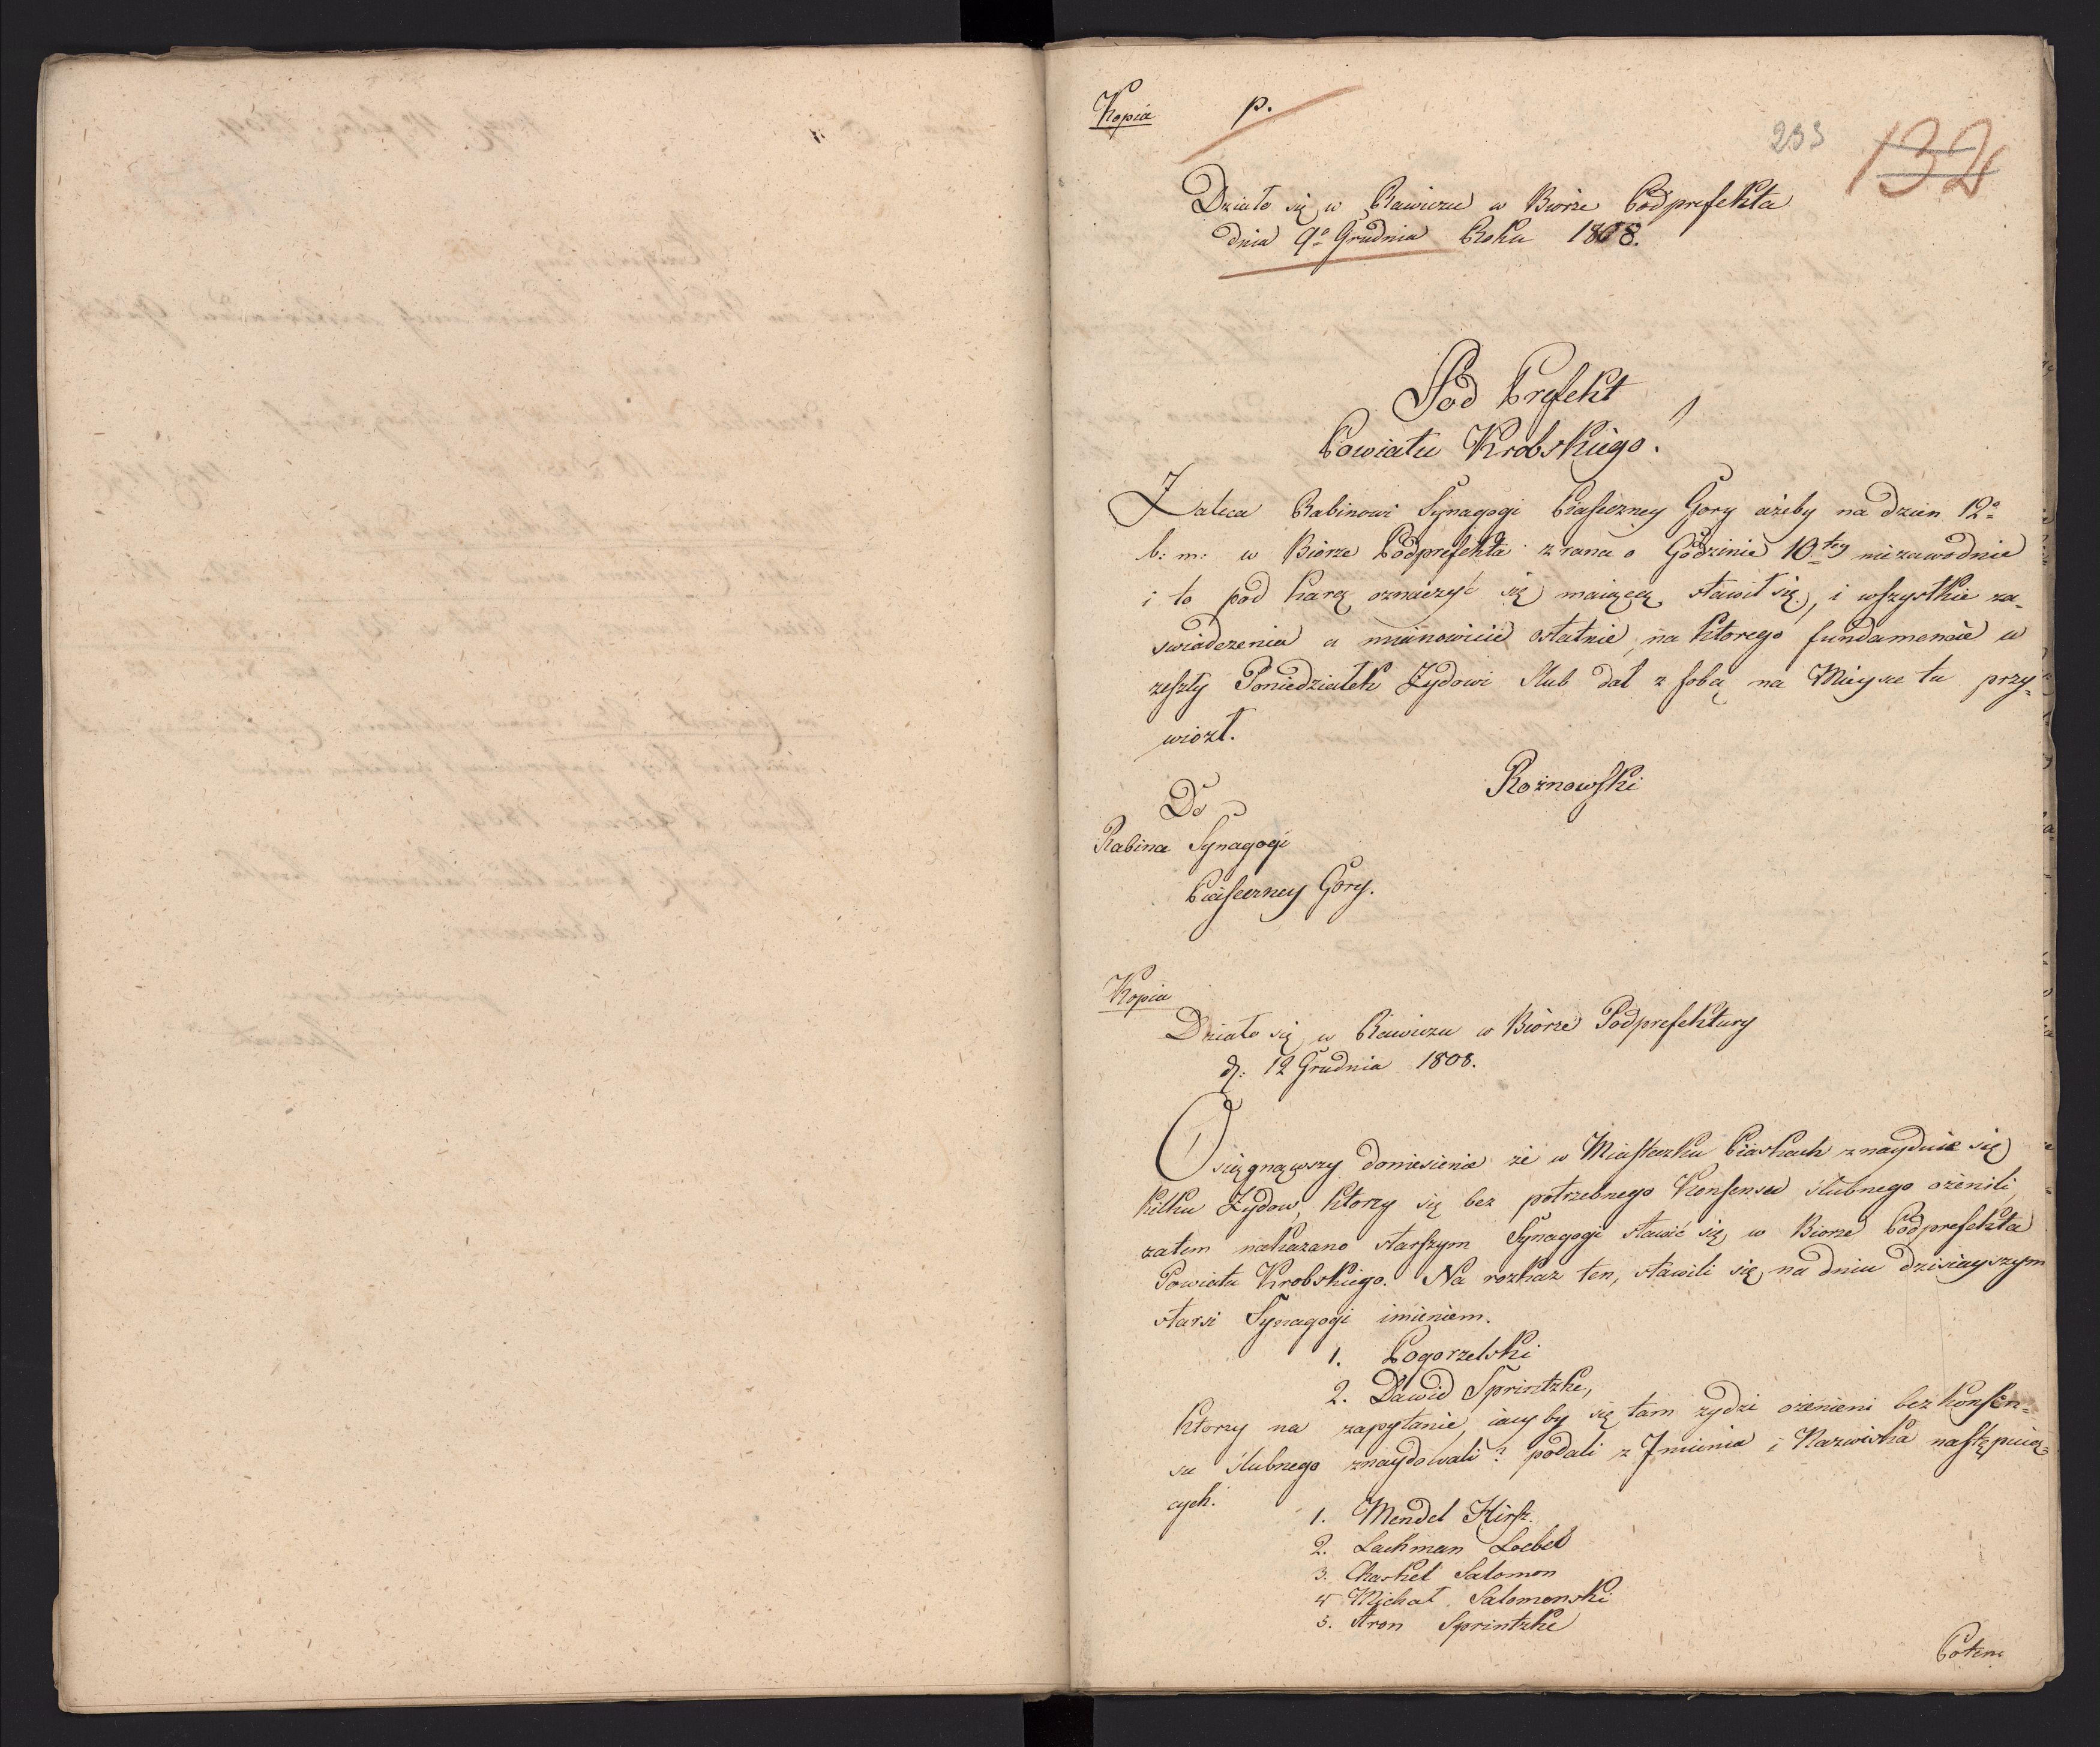 Kopia p.
233 132
Działo się w Rawiczu w Biórze Podprefekta
dnia 9º Grudnia Roku 1808.
Pod Prefekt
Powiatu Krobskiego.
Zaleca Rabinowi Synagogi Piaseczney Gory ażeby na dzien 12º
b: m: w Biórze Podprefekta z rana o Godzinie 10tey niezawodnie
i to pod karą oznaczyć się maiącą stawił się, i wszystkie za-
swiadczenia a mianowicie ostatnie, na ktorego fundamencie w
zeszły Poniedziałek Żydowi slub dał z sobą na Mieysce tu przy-
wiozł.
Rożnowski
Do
Rabina Synagogi
Piaseczney Gory.
Kopia
Działo się w Rawiczu w Biórze Podprefektury
d: 12 Grudnia 1808.
Osiągnąwszy doniesienie że w Miasteczku Piaskach znayduie się
kilku Żydow, ktorzy się bez potrzebnego Konsensu slubnego ożenili,
zatem nakazano starszym Synagogi stawić się w Biorze Podprefekta
Powiatu Krobskiego. Na rozkaz ten, stawili się na dniu dzisiayszym
starsi Synagogi imieniem.
1. Pogorzelski
2. Dawid Sprintzke,
ktorzy na zapytanie, iacy by się tam żydzi ożenieni bez konsen-
su slubnego znaydowali? podali z Imienia i Nazwiska następuią-
cych.
1. Mendel Hirsz.
2. Lachman Loebel
3. Chaskel Salomon
4 Michał Salomonski
5. Aron Sprintzke
Potem